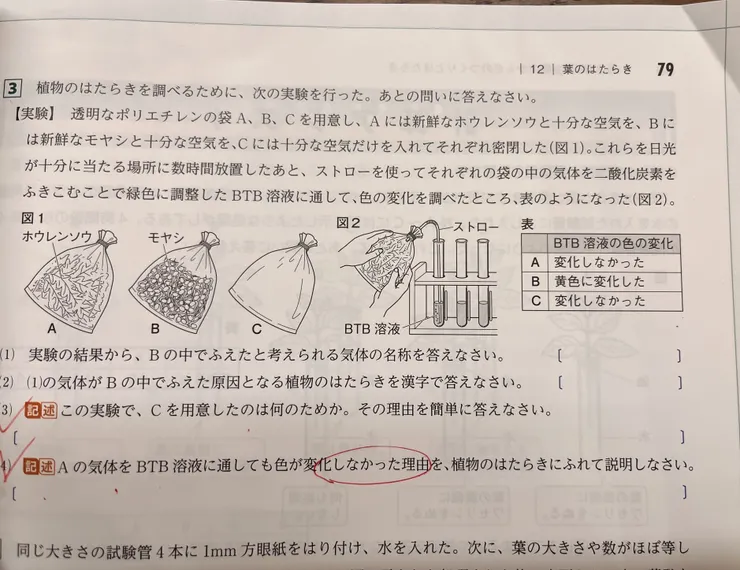 | 12 | 葉のはたらき 79
3 植物のはたらきを調べるために、次の実験を行った。あとの問いに答えなさい。
【実験】 透明なポリエチレンの袋A、B、Cを用意し、Aには新鮮なホウレンソウと十分な空気を、Bに
は新鮮なモヤシと十分な空気を、Cには十分な空気だけを入れてそれぞれ密閉した(図1)。これらを日光
が十分に当たる場所に数時間放置したあと、ストローを使ってそれぞれの袋の中の気体を二酸化炭素を
ふきこむことで緑色に調整したBTB溶液に通して、色の変化を調べたところ、表のようになった(図2)。
図1
ホウレンソウ
モヤシ
A
B
C
図2
ストロー
BTB溶液
表
BTB溶液の色の変化
A 変化しなかった
B 黄色に変化した
C 変化しなかった
(1) 実験の結果から、Bの中でふえたと考えられる気体の名称を答えなさい。 [ ]
(2) (1)の気体がBの中でふえた原因となる植物のはたらきを漢字で答えなさい。 [ ]
3) 記述 この実験で、Cを用意したのは何のためか。その理由を簡単に答えなさい。
[ ]
4) 記述 Aの気体をBTB溶液に通しても色が変化しなかった理由を、植物のはたらきにふれて説明しなさい。
[ ]
同じ大きさの試験管4本に1mm方眼紙をはり付け、水を入れた。次に、葉の大きさや数がほぼ等し